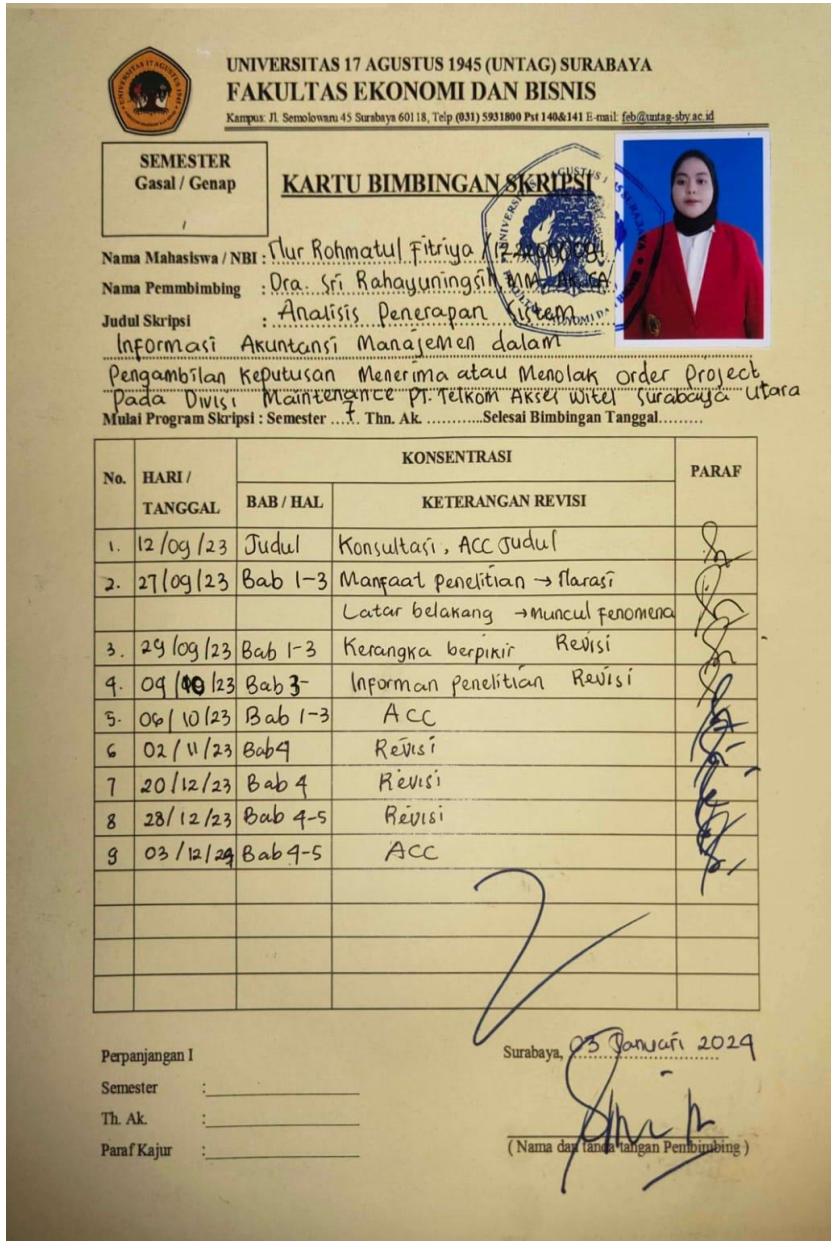 UNIVERSITAS 17 AGUSTUS 1945 (UNTAG) SURABAYA
FAKULTAS EKONOMI DAN BISNIS
Kampus: Jl. Semolowaru 45 Surabaya 60118, Telp (031) 5931800 Pst 140&141 E-mail: feb@untag-sby.ac.id
SEMESTER
Gasal / Genap
/
KARTU BIMBINGAN SKRIPSI
Nama Mahasiswa / NBI : Nur Rohmatul Fitriya /
Nama Pemmbimbing : Dra. Sri Rahayuningsih, MM.
Judul Skripsi : Analisis Penerapan Sistem
Informasi Akuntansi Manajemen dalam
Pengambilan Keputusan Menerima atau Menolak order Project
Pada Divisi Maintenance PT. Telkom Akses Witel Surabaya Utara
Mulai Program Skripsi : Semester ...7.. Thn. Ak. ...........Selesai Bimbingan Tanggal.........
No. HARI / TANGGAL KONSENTRASI PARAF
BAB / HAL KETERANGAN REVISI
1. 12/09/23 Judul Konsultasi, ACC Judul
2. 27/09/23 Bab 1-3 Manfaat penelitian → Narasi
Latar belakang → muncul fenomena
3. 29/09/23 Bab 1-3 Kerangka berpikir Revisi
4. 04/10/23 Bab 3- Informan penelitian Revisi
5. 06/10/23 Bab 1-3 ACC
6 02/11/23 Bab 4 Revisi
7 20/12/23 Bab 4 Revisi
8 28/12/23 Bab 4-5 Revisi
9 03/12/24 Bab 4-5 ACC
Perpanjangan I
Semester :
Th. Ak. :
Paraf Kajur :
Surabaya, 03 Januari 2024
( Nama dan tanda tangan Pembimbing )